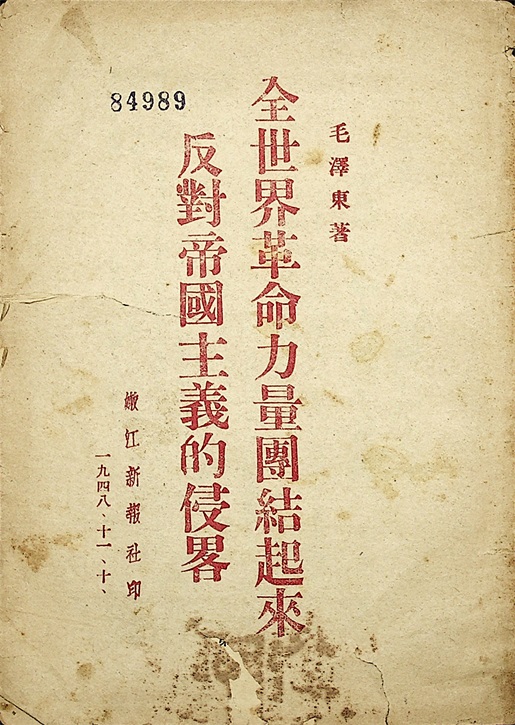 毛澤東著
全世界革命力量團結起來
反對帝國主義的侵畧
84989
嫩江新報社印
一九四八、十一、十、